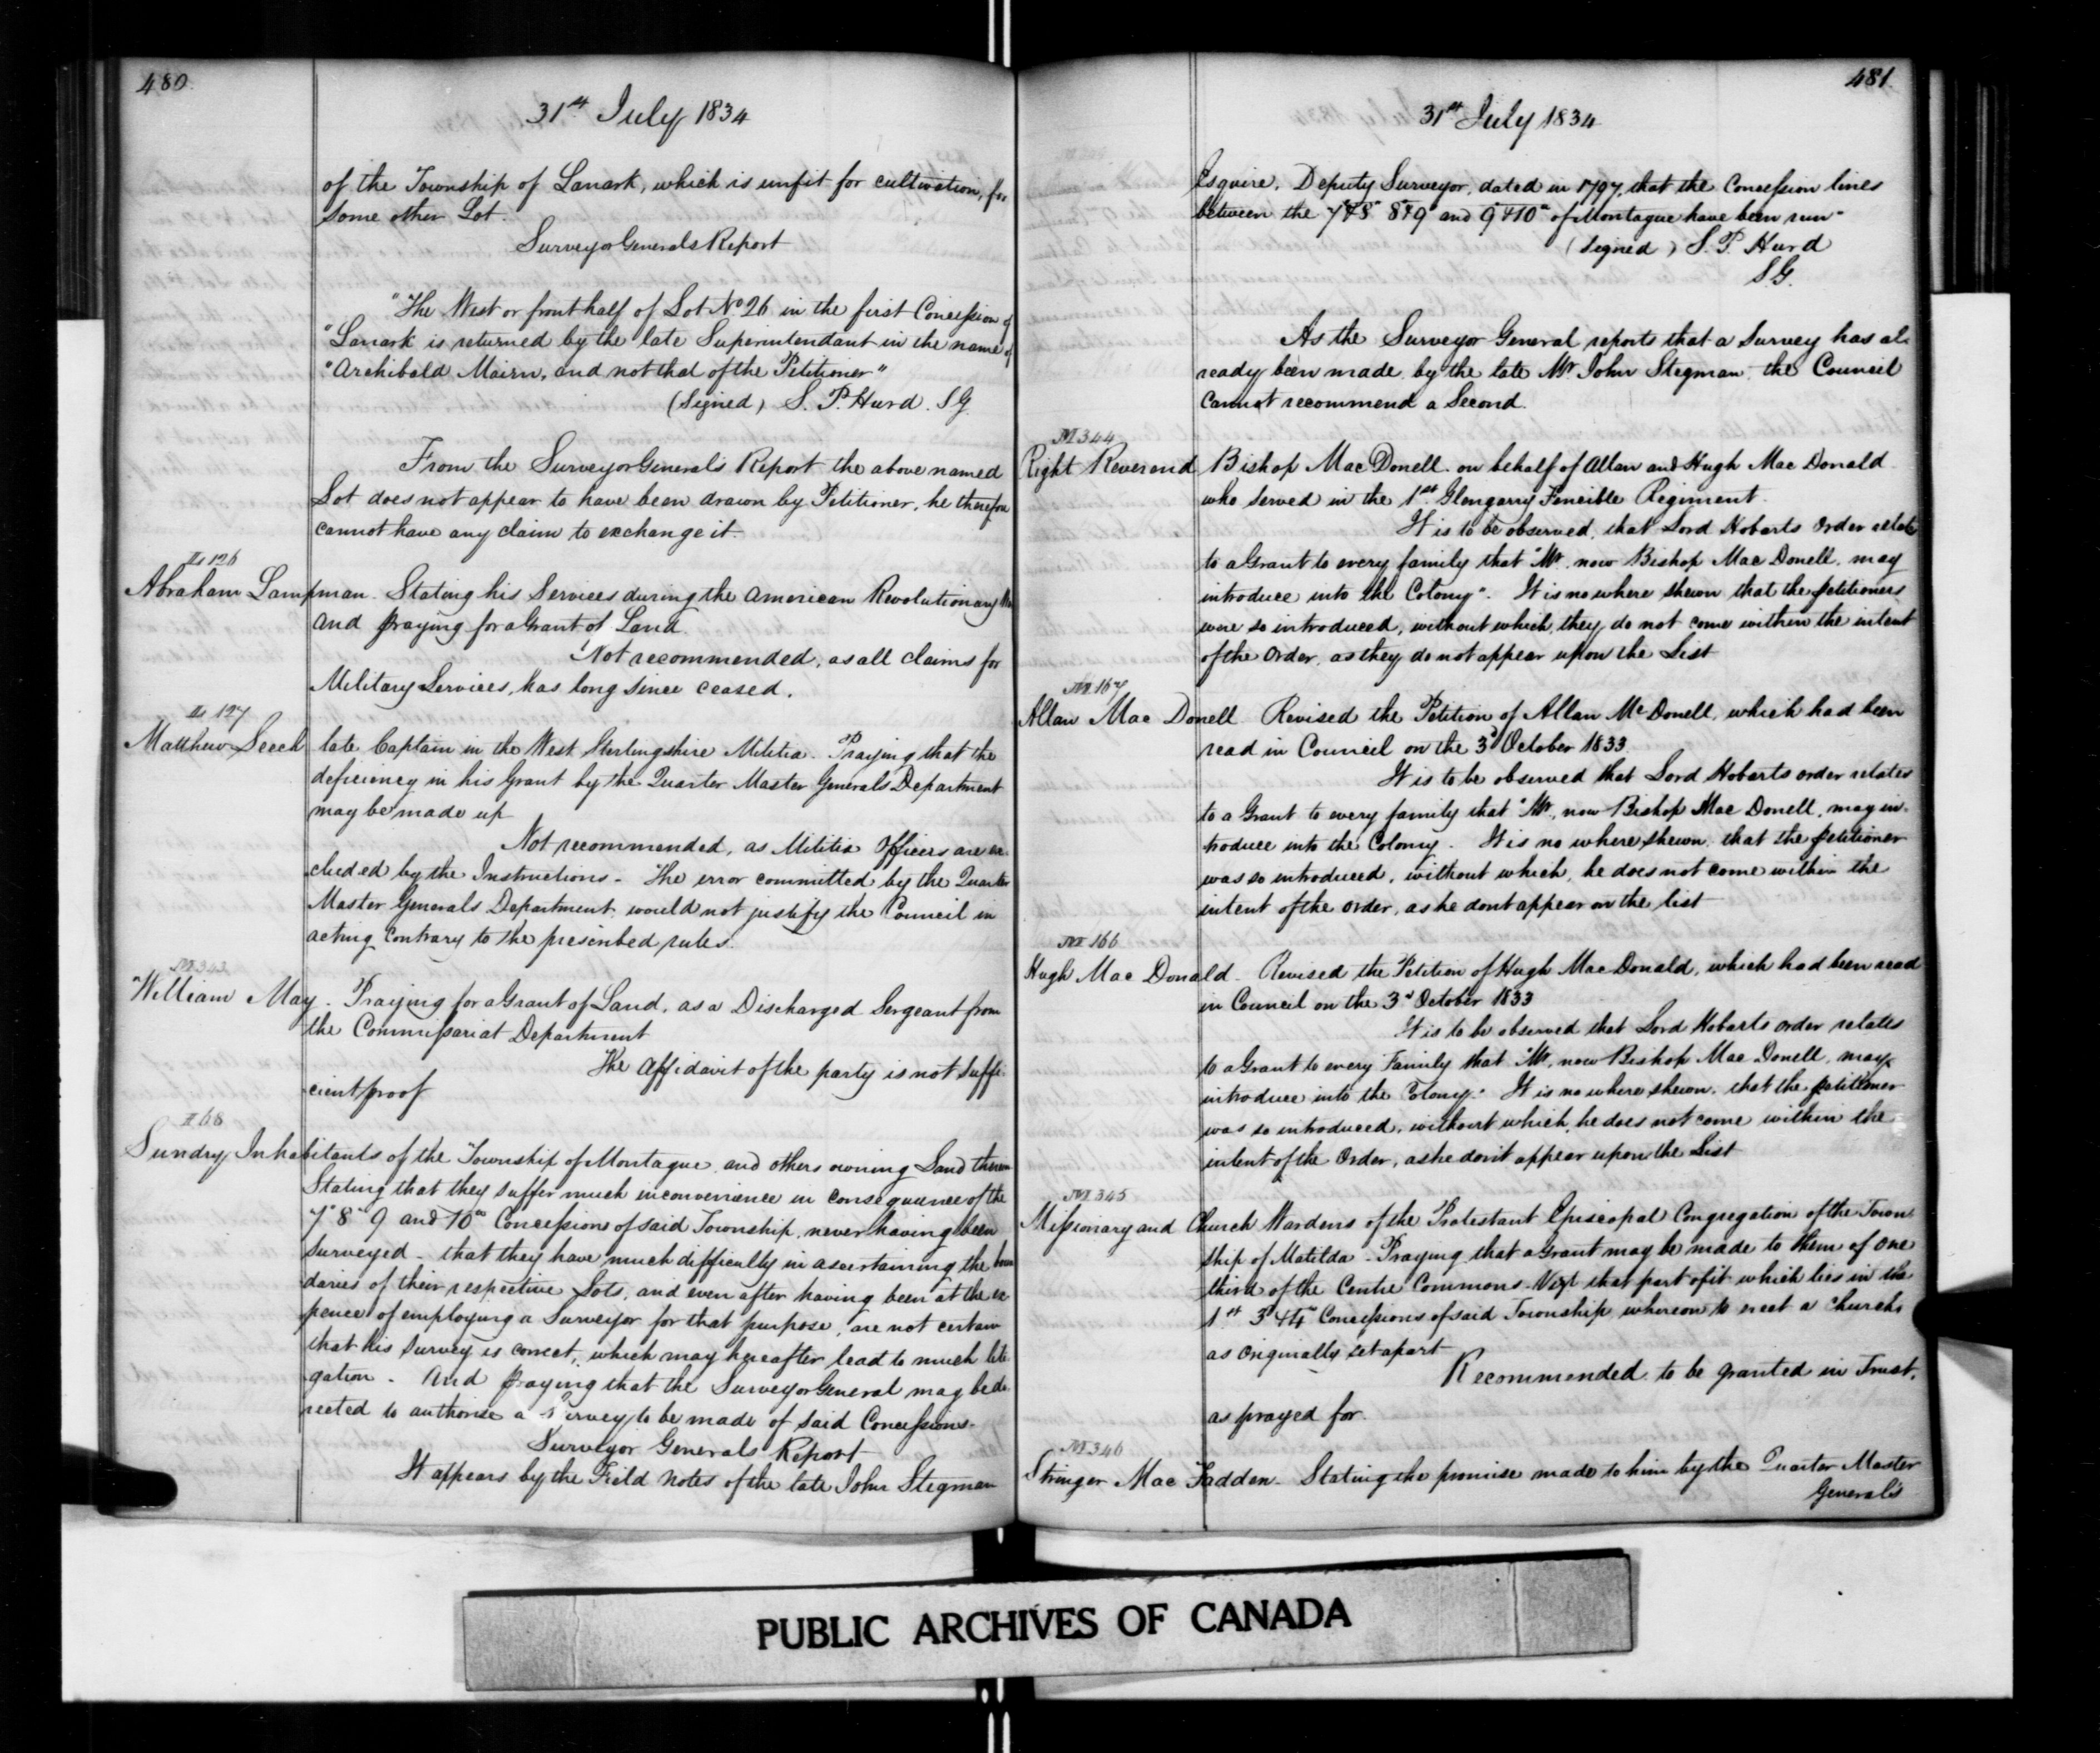 480
31st July 1834
of the Township of Lanark, which is unfit for cultivation, for
some other Lot.
Surveyor Generals Report
"The West or front half of Lot No 26 in the first Concession of
"Lanark is returned by the late Superintendant in the name of
"Archibald Mairn, and not that of the Petitioner"
(Signed) S. P. Hurd. S.G.
From the Surveyor General's Report the above named
Lot does not appear to have been drawn by Petitioner, he therefore
cannot have any claim to exchange it.
L 126
Abraham Lampman. Stating his Services during the American Revolutionary War
and praying for a Grant of Land.
Not recommended, as all claims for
Military Services, has long since ceased.
L 127
Matthew Leech late Captain in the West Sterlingshire Militia. Praying that the
deficiency in his Grant by the Quarter Master Generals Department
may be made up
Not recommended, as Militia Officers are ex-
cluded by the Instructions. The error committed by the Quarter
Master Generals Department, would not justify the Council in
acting contrary to the prescribed rules.
M 343
William May. Praying for a Grant of Land, as a Discharged Sergeant from
the Commissariat Department
The Affidavit of the party is not suffi-
cient proof
68
Sundry Inhabitants of the Township of Montague and others owning Land therein
Stating that they suffer much inconvenience in consequence of the
7th 8th 9 and 10th Concessions of said Township, never having been
surveyed - that they have much difficulty in ascertaining the boun
daries of their respective Lots, and even after having been at the ex
pence of employing a Surveyor for that purpose, are not certain
that his Survey is correct, which may hereafter lead to much liti
gation - And praying that the Surveyor General may be di-
rected to authorise a Survey to be made of said Concessions.
Surveyor Generals Report
It appears by the Field Notes of the late John Stegman
481
31st July 1834
Esquire, Deputy Surveyor, dated in 1797, that the Concession lines
between the 7 & 8th 8 & 9th and 9 & 10th of Montague have been run"
(signed) S. P. Hurd
S.G.
As the Surveyor General reports that a Survey has al-
ready been made by the late Mr John Stegman, the Council
cannot recommend a Second.
M 344
Right Reverend Bishop Mac Donell on behalf of Allan and Hugh Mac Donald
who served in the 1st Glengarry Fencible Regiment.
It is to be observed, that Lord Hobarts Order relates
to a Grant to every family that "Mr. now Bishop Mac Donell, may
introduce into the Colony". It is no where shewn that the petitioners
were so introduced, without which, they do not come within the intent
of the Order, as they do not appear upon the List
M 167
Allan Mac Donell Revised the Petition of Allan Mc Donell, which had been
read in Council on the 3d October 1833.
It is to be observed that Lord Hobarts order relates
to a Grant to every family that "Mr., now Bishop Mac Donell, may in-
troduce into the Colony. It is no where shewn, that the petitioner
was so introduced, without which, he does not come within the
intent of the order, as he dont appear on the list
M 166
Hugh Mac Donald. Revised the Petition of Hugh Mac Donald, which had been read
in Council on the 3d October 1833
It is to be observed that Lord Hobarts order relates
to a Grant to every Family that "Mr, now Bishop Mac Donell, may
introduce into the Colony." It is no where shewn, that the petitioner
was so introduced, without which, he does not come within the
intent of the Order, as he don't appear upon the List
M 345
Missionary and Church Wardens of the Protestant Episcopal Congregation of the Town
ship of Matilda. Praying that a Grant may be made to them of one
third of the Centre Commons. Vizt that part of it which lies in the
1st 3d & 4th Concessions of said Township, whereon to erect a Church,
as originally set apart
Recommended to be granted in Trust,
as prayed for.
M 346
Stringer Mac Fadden. Stating the promise made to him by the Quarter Master
General's
PUBLIC ARCHIVES OF CANADA